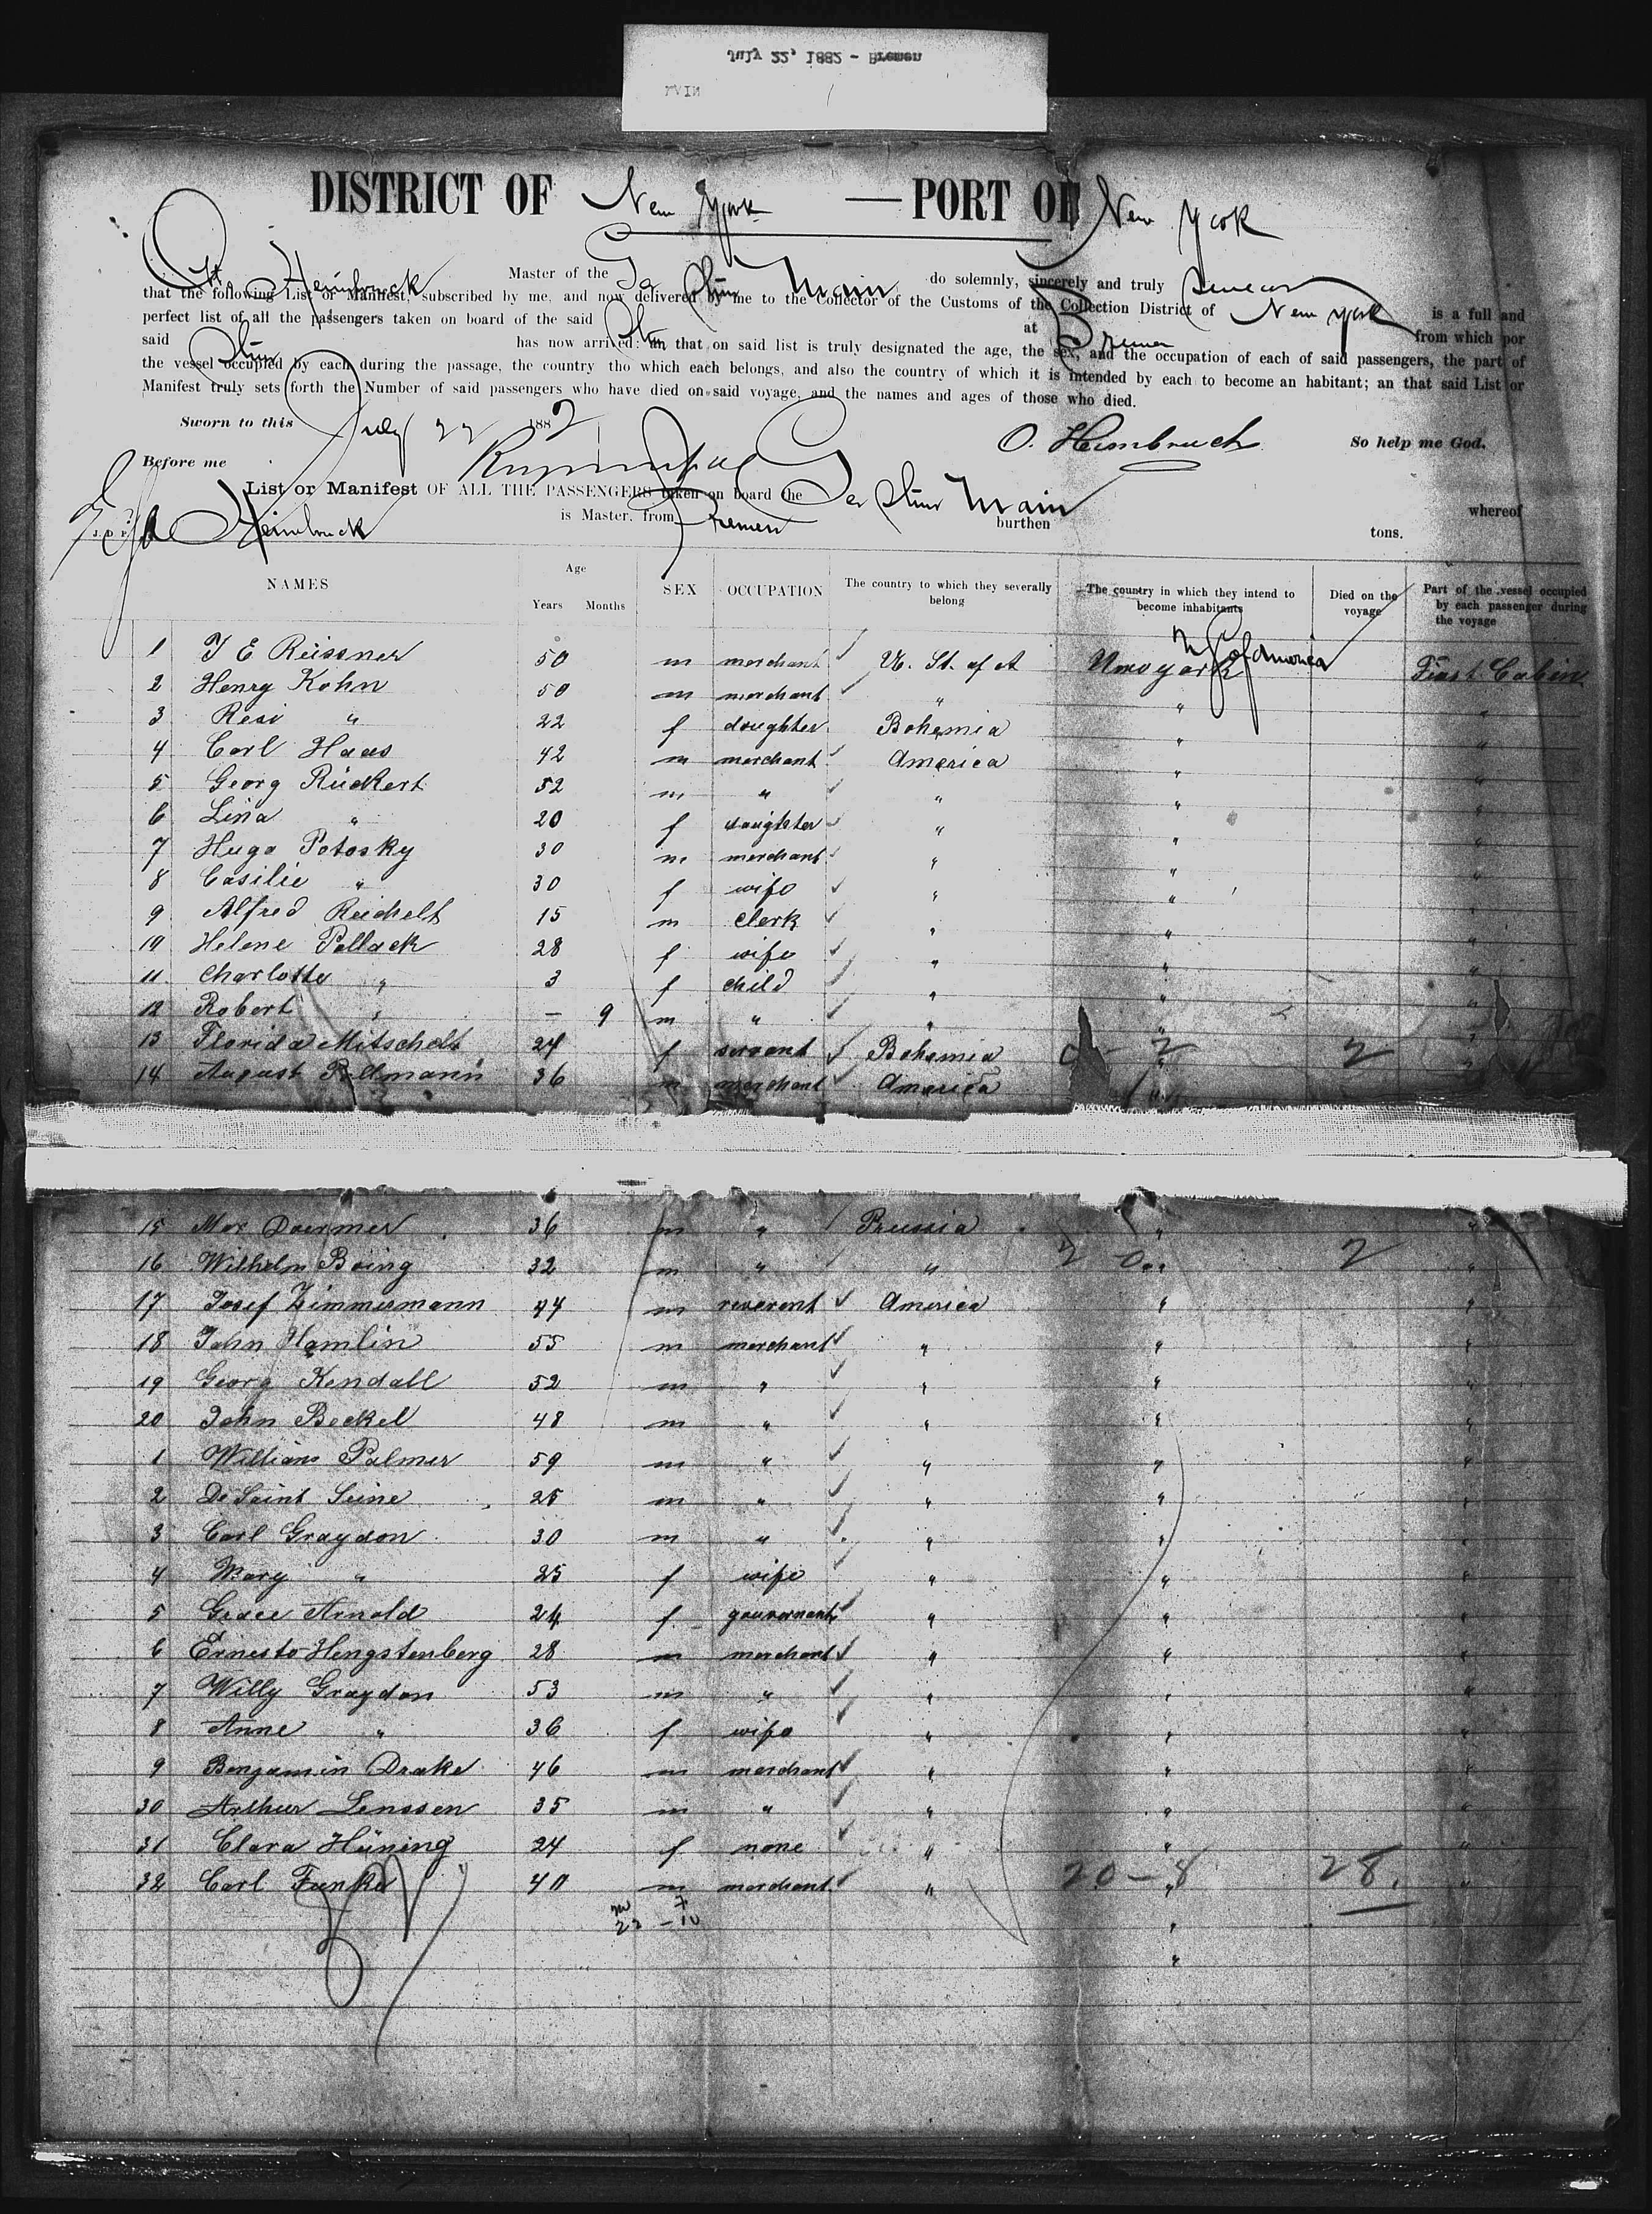 July 22, 1882 - Bremen
MAIN
DISTRICT OF New York — PORT OF New York
Otto Heimbruck Master of the Ger Stmr Main do solemnly, sincerely and truly swear
that the following List or Manifest, subscribed by me, and now delivered by me to the Collector of the Customs of the Collection District of New York is a full and
perfect list of all the passengers taken on board of the said Stmr at Bremen from which por
said Stmr has now arrived: an that on said list is truly designated the age, the sex, and the occupation of each of said passengers, the part of
the vessel occupied by each during the passage, the country tho which each belongs, and also the country of which it is intended by each to become an habitant; an that said List or
Manifest truly sets forth the Number of said passengers who have died on said voyage, and the names and ages of those who died.
Sworn to this July 22 1882 O. Heimbruch So help me God.
Before me
List or Manifest OF ALL THE PASSENGERS taken on board the Ger Stmr Main whereof
Heimbruck is Master, from Bremen burthen tons.
NAMES Age Years Months SEX OCCUPATION The country to which they severally belong The country in which they intend to become inhabitants Died on the voyage Part of the vessel occupied by each passenger during the voyage
U S of America
1 J E Reissner 50 m merchant U. St. of A New york First Cabin
2 Henry Kohn 50 m merchant " " "
3 Resi " 22 f daughter Bohemia " "
4 Carl Haas 42 m merchant America " "
5 Georg Rückert 52 m " " " "
6 Lina " 20 f daughter " " "
7 Hugo Potosky 30 m merchant " " "
8 Casilie " 30 f wife " " "
9 Alfred Reichelt 15 m clerk " " "
10 Helene Pollack 28 f wife " " "
11 Charlotte " 3 f child " " "
12 Robert " — 9 m " " " "
13 Florida Mitschelt 24 f servant Bohemia " 2 2 "
14 August Pollmann 36 m merchant America " "
15 Max Doermer 36 m " Prussia " "
16 Wilhelm Böing 32 m " " 2 0 " 2 "
17 Josef Zimmermann 44 m reverent America " "
18 John Hamlin 55 m merchant " " "
19 Georg Kendall 52 m " " " "
20 John Bockel 48 m " " " "
1 William Palmer 59 m " " " "
2 De Saint Seine 25 m " " " "
3 Carl Graydon 30 m " " " "
4 Mary " 25 f wife " " "
5 Grace Arnold 24 f gouvernante " " "
6 Ernesto Hengstenberg 28 m merchant " " "
7 Willy Graydon 53 m " " " "
8 Anne " 36 f wife " " "
9 Benjamin Drake 46 m merchant " " "
30 Arthur Lenssen 35 m " " " "
31 Clara Hüning 24 f none " " "
32 Carl Funke 40 m merchant " 20 - 8 " 28. "
m f
22 - 10 "
"